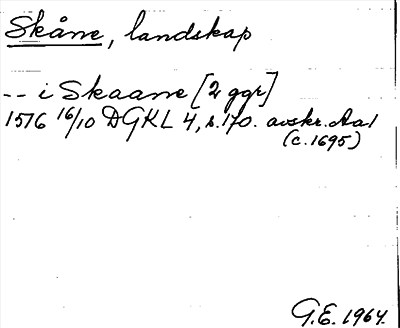 Skåne, landskap
-- i Skaane [2 ggr]
1576 16/10 DGKL 4, s. 170. avskr. Aa1
(c. 1695)
G.E. 1964.